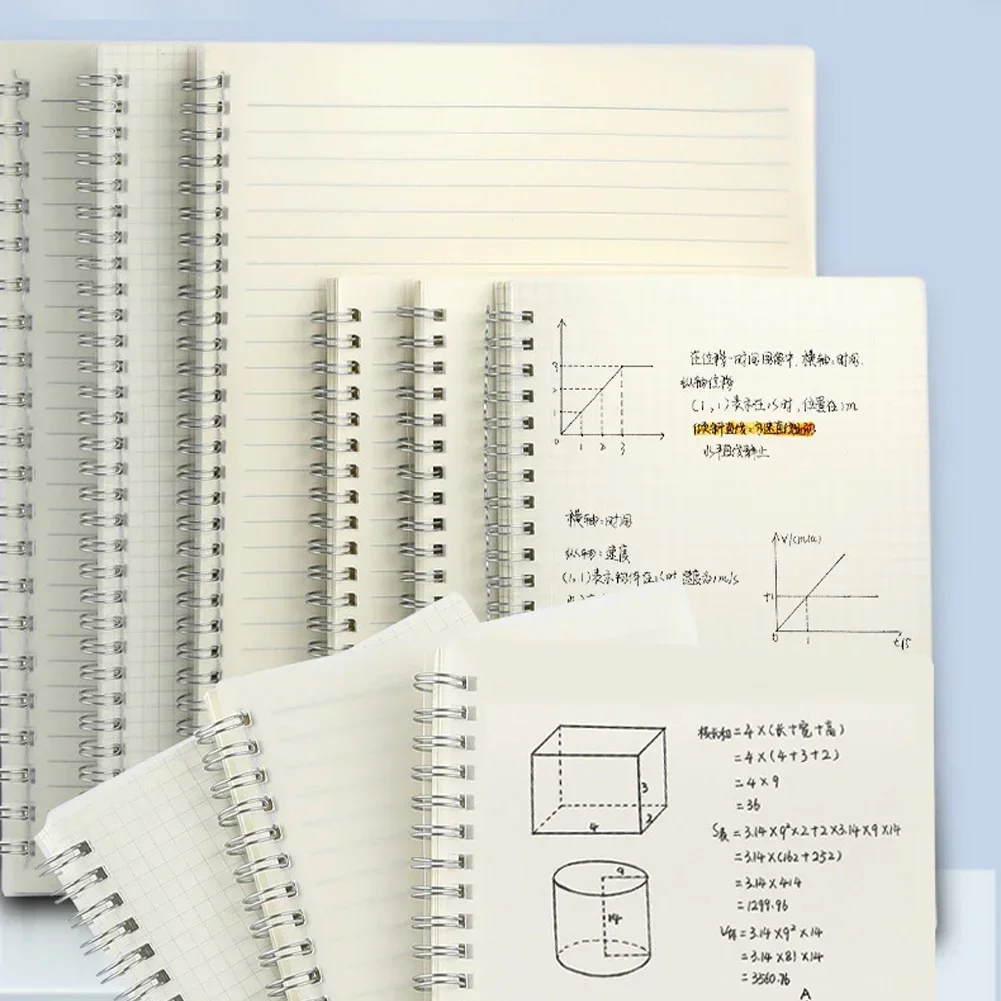 在位移-时间图像中,横轴:时间.
纵轴位移
(1,1)表示在1s时,位置在1m
倾斜直线:匀速直线运动
水平直线静止
3
2
1
0
1 2 3
横轴:时间
纵轴:速度
(1,1)表示物体在1s时 速度为1m/s
V/(m/s)
0
1
t/s
棱长和=4×(长+宽+高)
=4×(4+3+2)
=4×9
=36
3
2
4
S表=3.14×9²×2+2×3.14×9×14
=3.14×(162+252)
=3.14×414
=1299.96
9
14
V柱=3.14×9²×14
=3.14×81×14
=3560.76
A